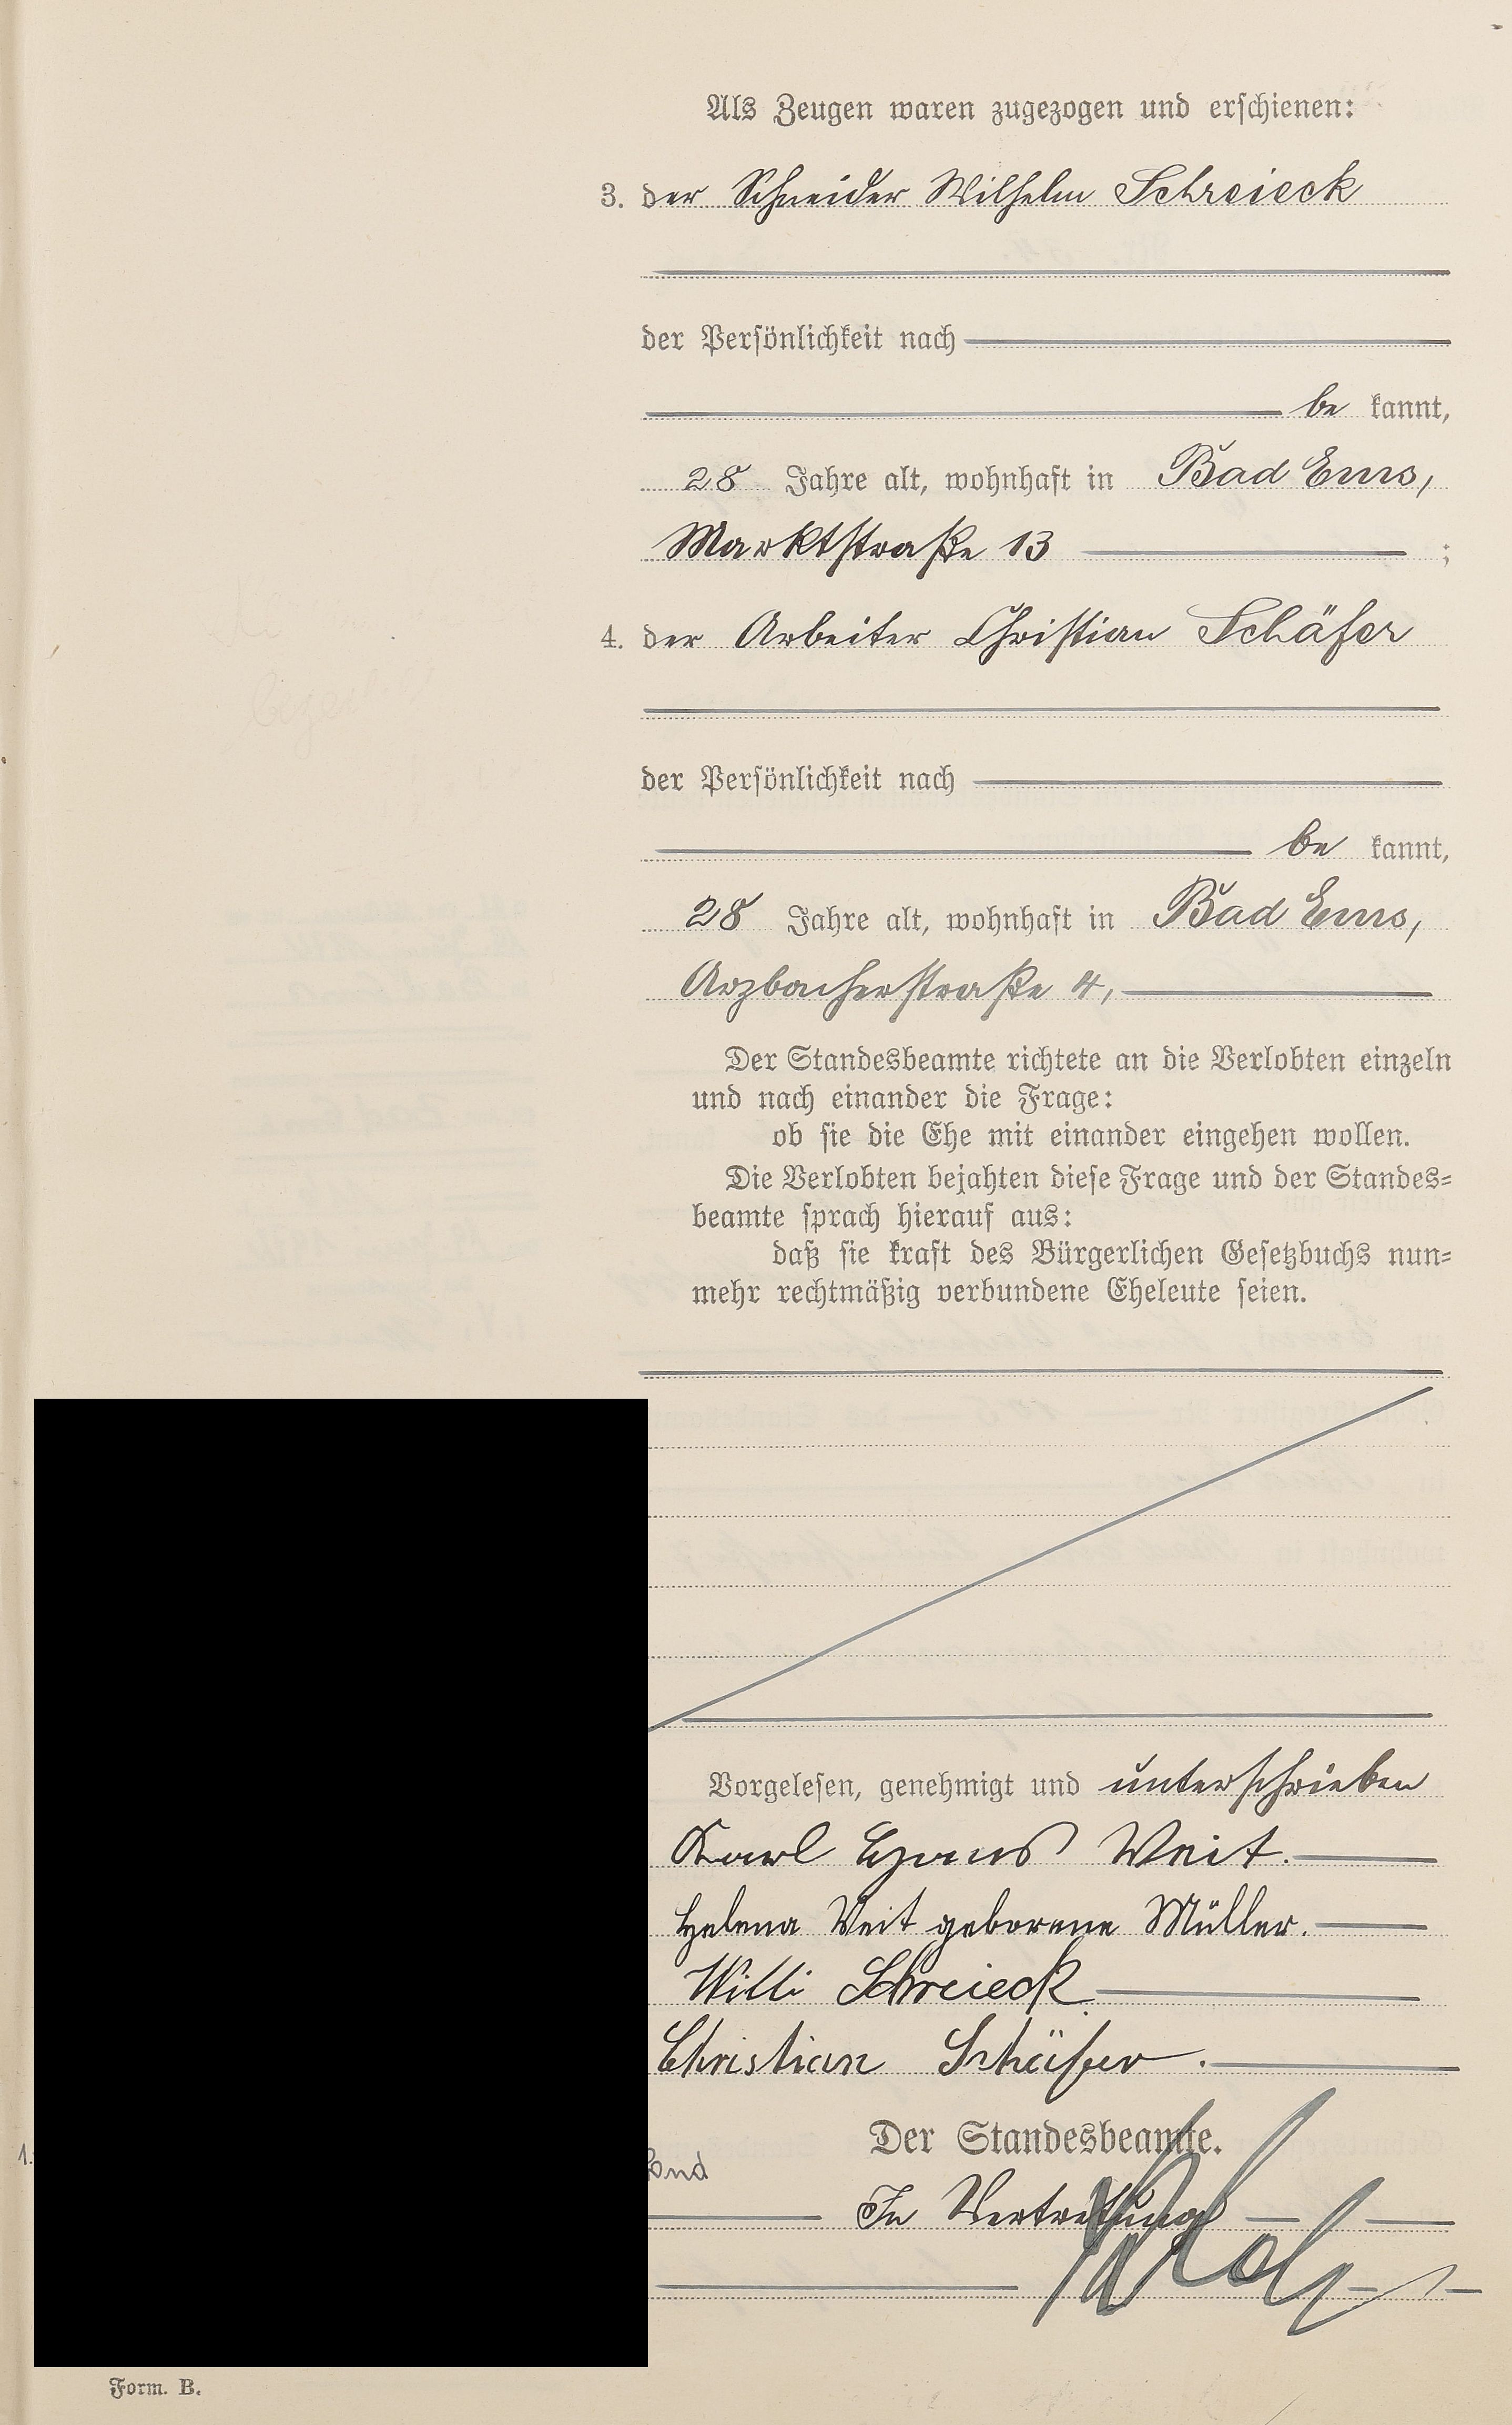 Als Zeugen waren zugezogen und erschienen:
3. der Schneider Wilhelm Schreieck
der Persönlichkeit nach
be kannt,
28 Jahre alt, wohnhaft in Bad Ems,
Marktstraße 13 ;
4. der Arbeiter Christian Schäfer
der Persönlichkeit nach
be kannt,
28 Jahre alt, wohnhaft in Bad Ems,
Arzbacherstraße 4,
Der Standesbeamte richtete an die Verlobten einzeln
und nach einander die Frage:
ob sie die Ehe mit einander eingehen wollen.
Die Verlobten bejahten diese Frage und der Standes=
beamte sprach hierauf aus:
daß sie kraft des Bürgerlichen Gesetzbuchs nun=
mehr rechtmäßig verbundene Eheleute seien.
Vorgelesen, genehmigt und unterschrieben
Karl Hans Veit.
Helena Veit geborene Müller.
Willi Schreieck
Christian Schäfer.
Der Standesbeamte.
In Vertretung
Form. B.